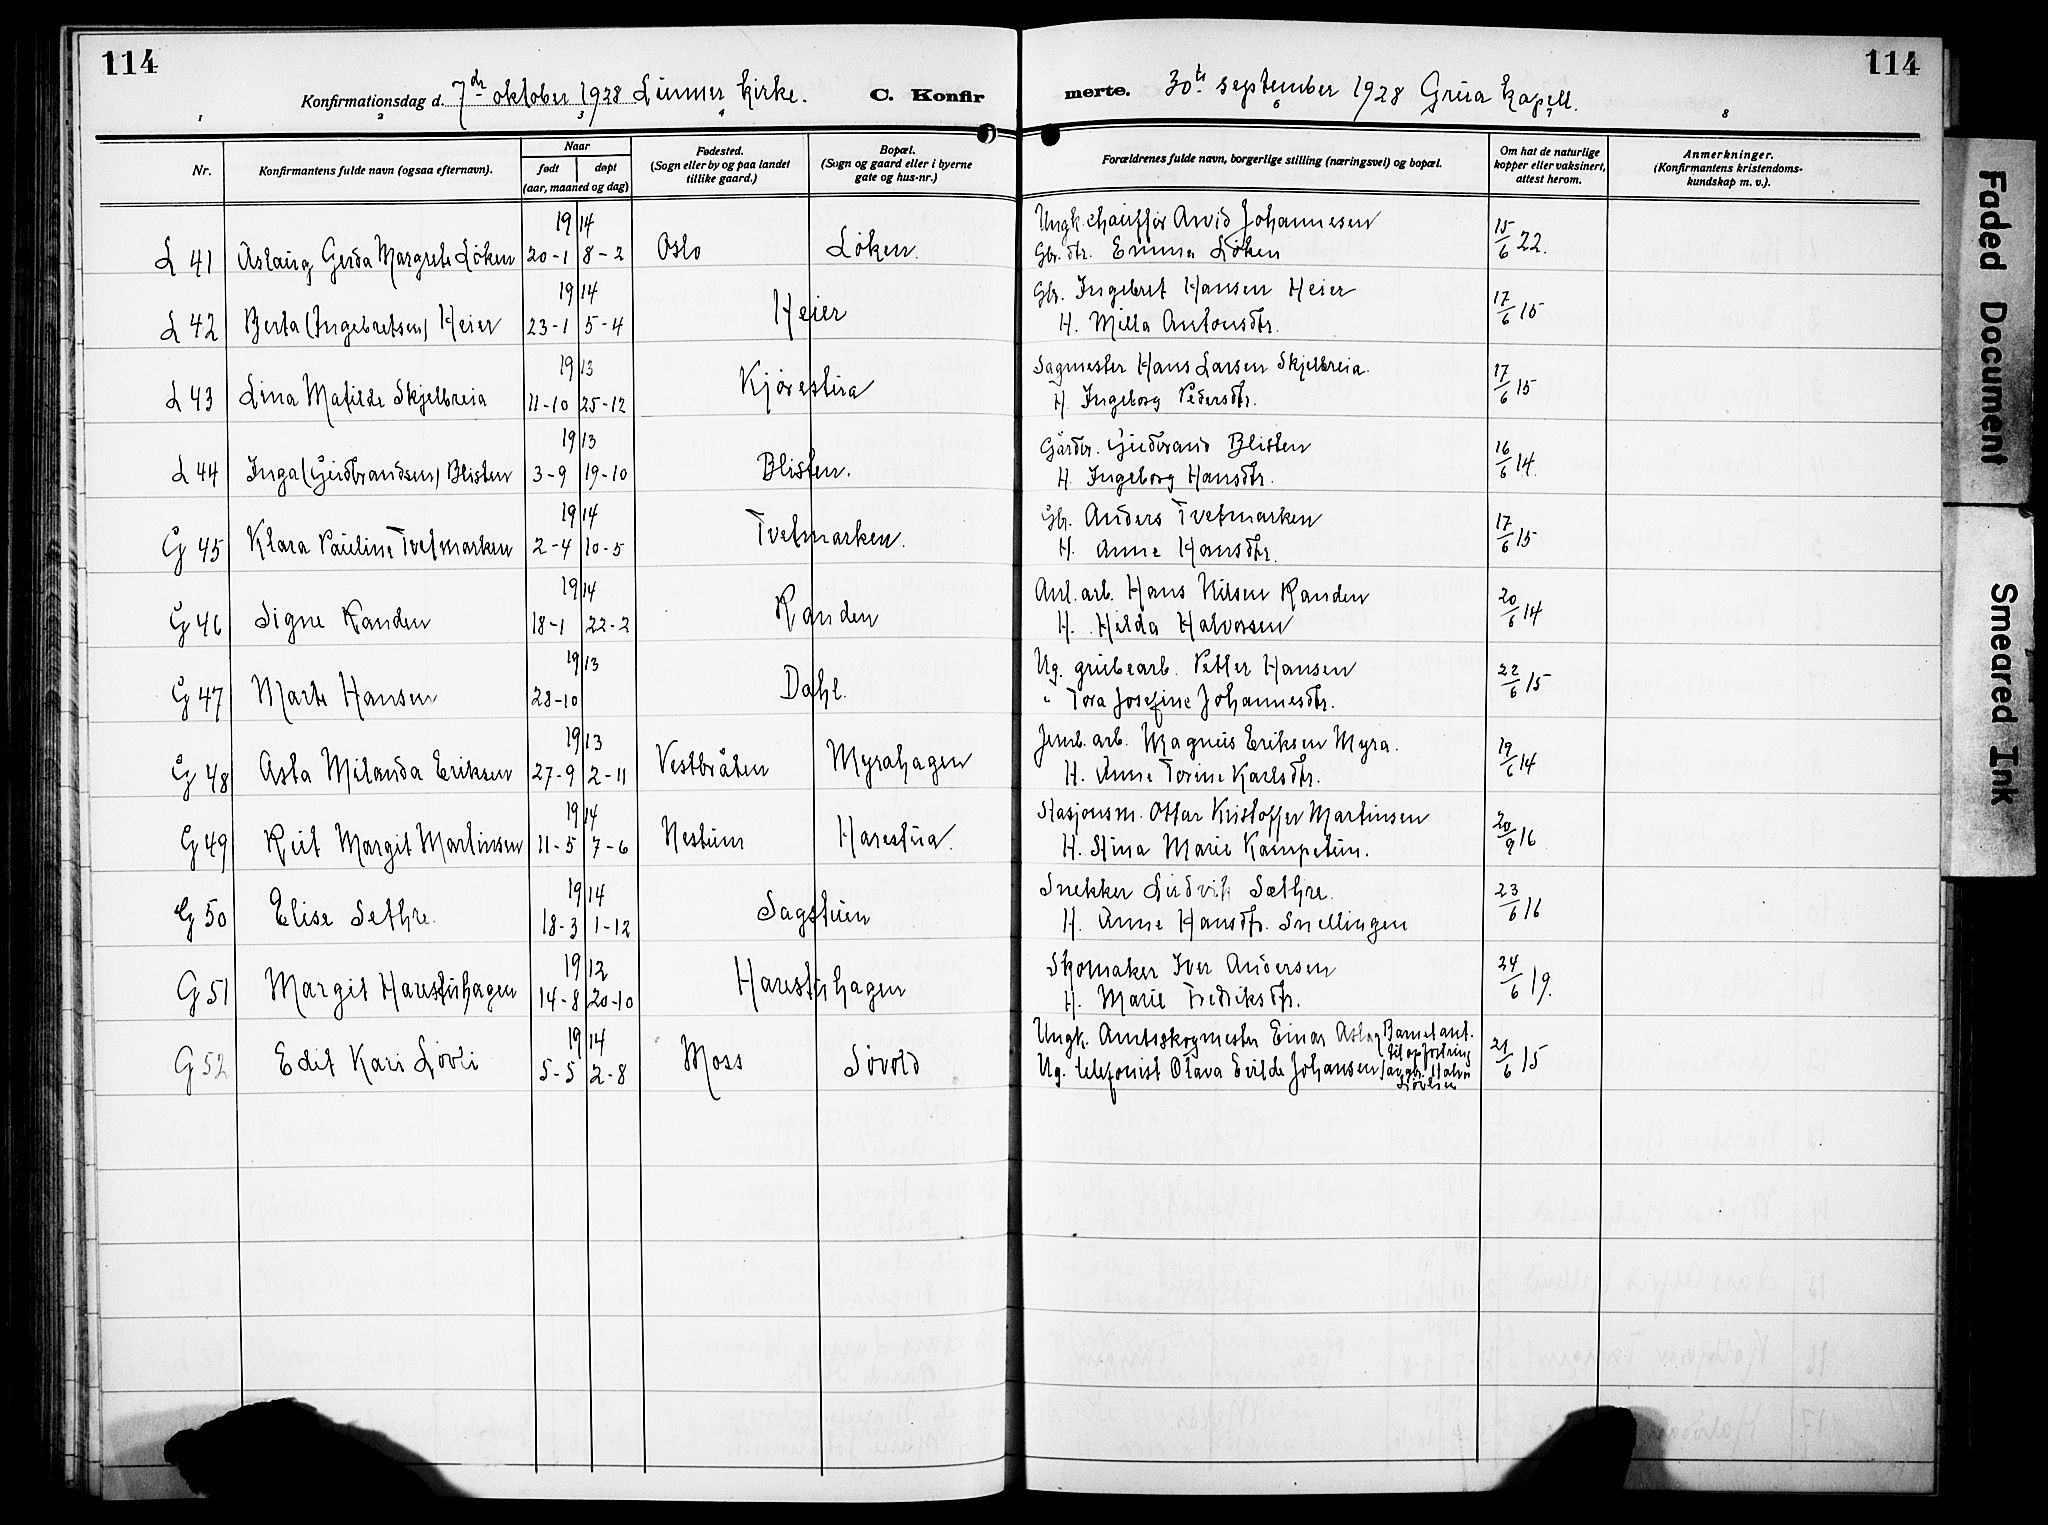 114
114
Konfirmationsdag d. 7de oktober 1928 Lunner kirke. C. Konfir
merte. 30te september 1928 Grua kapell.
1 2 3 4 6 7 8
Nr. Konfirmantens fulde navn (ogsaa efternavn). Naar født døpt (aar, maaned og dag) Fødested. (Sogn eller by og paa landet tillike gaard.) Bopæl. (Sogn og gaard eller i byerne gate og hus-nr.) Forældrenes fulde navn, borgerlige stilling (næringsvei) og bopæl. Om hat de naturlige kopper eller vaksinert, attest herom. Anmerkninger. (Konfirmantens kristendoms- kundskap m. v.).
19 14 Ungk. chauffør Arvid Johannesen
L 41 Aslaug Gerda Margrete Løken 20-1 8-2 Oslo Løken. Gbr. dtr. Emma Løken 15/6 22.
19 14 Gbr. Ingebret Hansen Heier
L 42 Berta (Ingebretsen) Heier 23-1 5-4 Heier H. Milla Antonsdtr. 17/6 15
19 13 Sagmester Hans Larsen Skjelbreia.
L 43 Lina Matilde Skjelbreia 11-10 25-12 Kjørestua H. Ingeborg Pedersdtr. 17/6 15
19 13 Gårdbr. Gudbrand Blisten
L 44 Inga (Gudbrandsen) Blisten 3-9 19-10 Blisten. H. Ingeborg Hansdtr. 16/6 14.
19 14 Gbr. Anders Tvetmarken
G 45 Klara Pauline Tvetmarken 2-4 10-5 Tvetmarken. H. Anne Hansdtr. 17/6 15
19 14 Anl. arb. Hans Nilsen Randen
G 46 Signe Randen 18-1 22-2 Randen H. Hilda Halvorsen 20/6 14
19 13 Ug. grubearb. Petter Hansen
G 47 Marte Hansen 28-10 Dahl. " Tora Josefine Johannesdtr. 22/6 15
19 13 Jernb. arb. Magnus Eriksen Myra.
G 48 Asta Milanda Eriksen 27-9 2-11 Vestbråten Myrahagen H. Anne Torine Karlsdtr. 19/6 14
19 14 Stasjonsm. Ottar Kristoffer Martinsen
G 49 Rut Margit Martinsen 11-5 7-6 Nestun Harestua. H. Stina Marie Kampetun. 20/9 16
19 14 Snekker Ludvik Sæthre.
G 50 Elise Sethre. 18-3 1-12 Sagstuen H. Anne Hansdtr. Snellingen 23/6 16
19 12 Skomaker Iver Andersen
G 51 Margit Harestuhagen 14-8 20-10 Harestuhagen H. Marie Fredriksdtr. 24/6 19.
19 14 Ungk. Amtsskogmester Einar Aslag Barnet ant. til opfostring
G 52 Edit Kari Løvli 5-5 2-8 Moss Søvold Ug. telefonist Olava Evilde Johansen 21/6 15
Faded Document
Smeared Ink